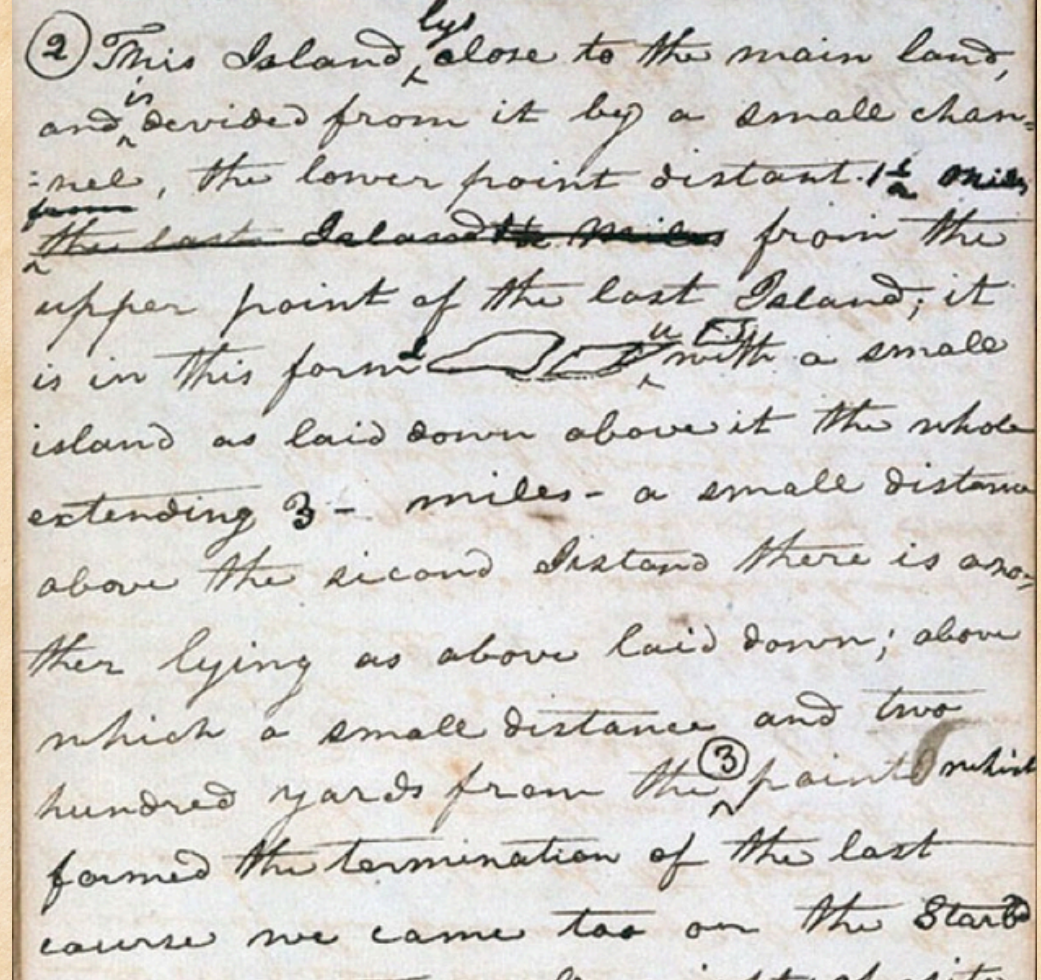 ② This Island ‸lys close to the main land,
and ‸is devided from it by a small chan=
=nel, the lower point distant. 1½ miles
from
the last Island miles from the
upper point of the last Island; it
is in this form with a small
island as laid down above it the whole
extending 3 - miles - a small distance
above the second Istand there is ano=
ther lying as above laid down; above
which a small distance and two
hundred yards from the ‸③ point which
formed the termination of the last
course we came too on the Starbd